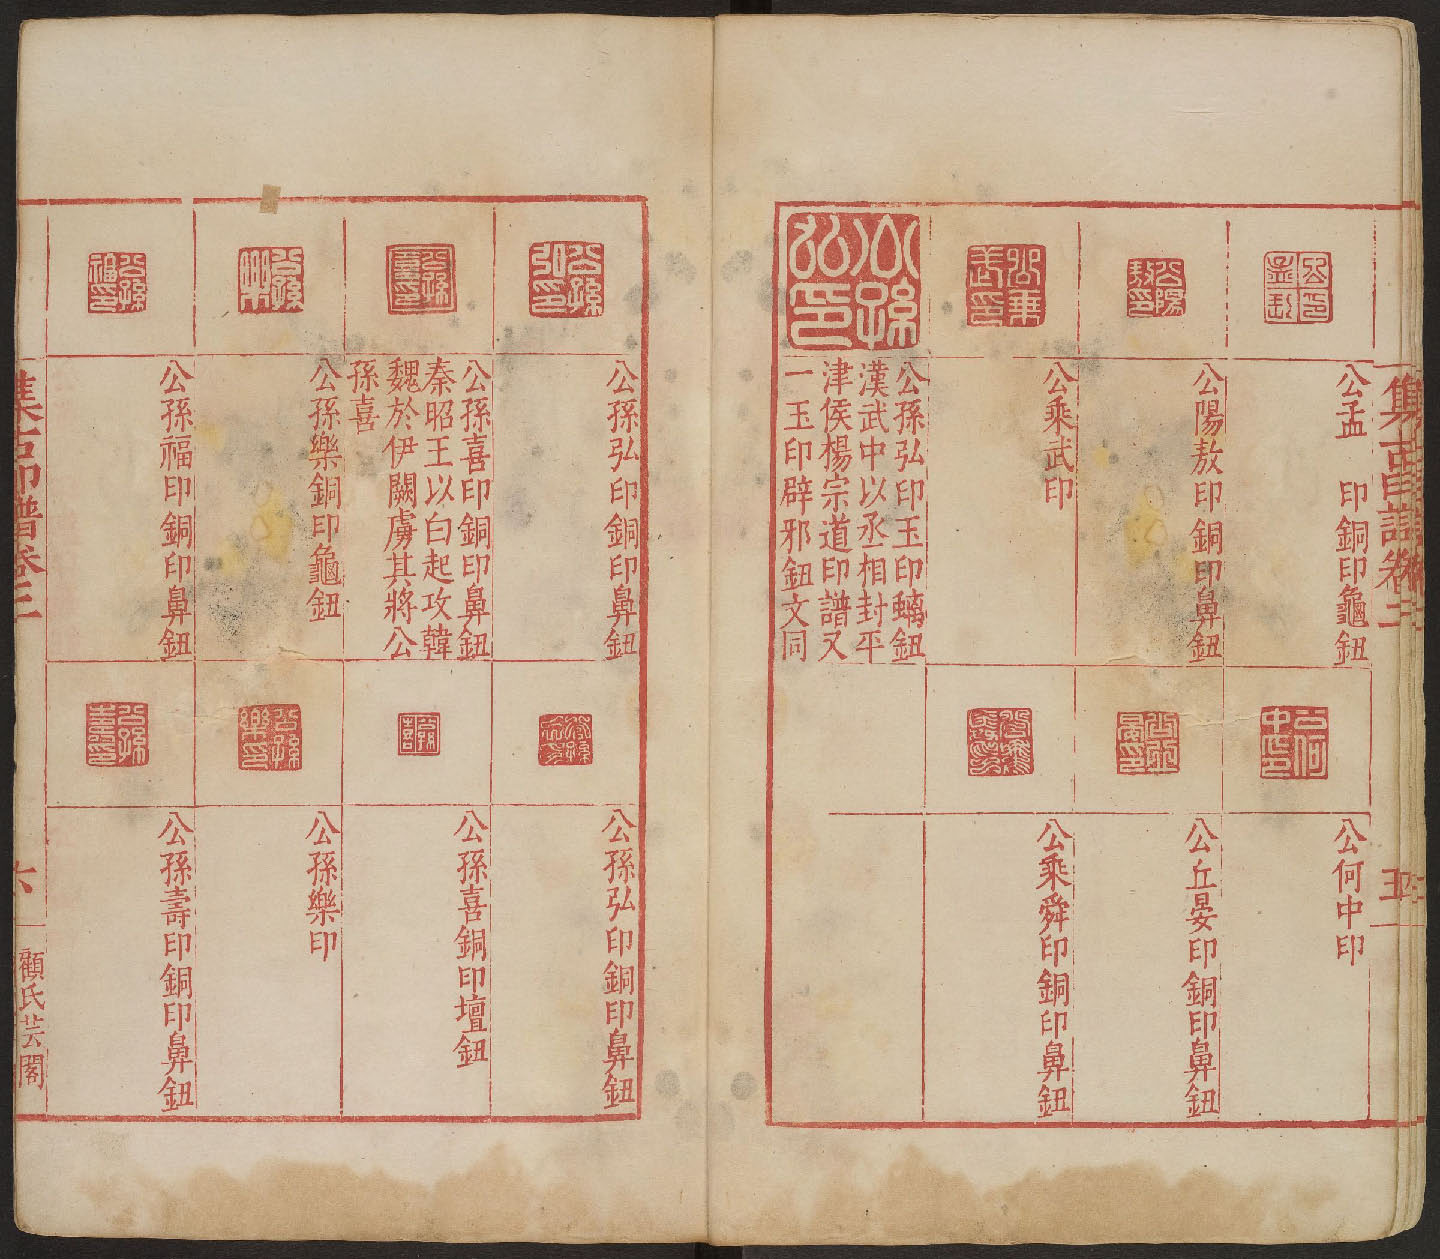 集古印譜卷三
五
公孟　印銅印龜鈕
公陽敖印銅印鼻鈕
公乘武印
公孫弘印玉印螭鈕
漢武中以丞相封平
津侯楊宗道印譜又
一玉印辟邪鈕文同
公何中印
公丘晏印銅印鼻鈕
公乘舜印銅印鼻鈕
公孫弘印
公孫弘印銅印鼻鈕
公孫喜印銅印鼻鈕
秦昭王以白起攻韓
魏於伊闕虜其將公
孫喜
公孫樂銅印龜鈕
公孫福印銅印鼻鈕
公孫弘印銅印鼻鈕
公孫喜銅印壇鈕
公孫樂印
公孫壽印銅印鼻鈕
集古印譜卷三
六
顧氏芸閣